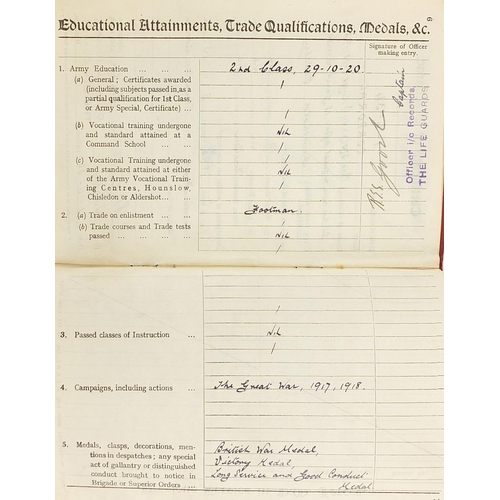 Educational Attainments, Trade Qualifications, Medals, &c.
9
Signature of Officer
making entry.
1. Army Education ... ... ... 2nd Class, 29-10-20
(a) General; Certificates awarded
(including subjects passed in, as a
partial qualification for 1st Class,
or Army Special, Certificate) ...
(b) Vocational training undergone
and standard attained at a
Command School ... ...
Nil
(c) Vocational Training undergone
and standard attained at either
of the Army Vocational Train-
ing Centres, Hounslow,
Chisledon or Aldershot ... ...
Nil
2. (a) Trade on enlistment ... ... Footman.
(b) Trade courses and Trade tests
passed ... ... ... ... Nil
Captain
Officer i/c Records,
THE LIFE GUARDS
3. Passed classes of Instruction ... Nil
4. Campaigns, including actions ... The Great War, 1917, 1918.
5. Medals, clasps, decorations, men-
tions in despatches; any special
act of gallantry or distinguished
conduct brought to notice in
Brigade or Superior Orders ...
British War Medal,
Victory Medal
Long Service and Good Conduct
Medal